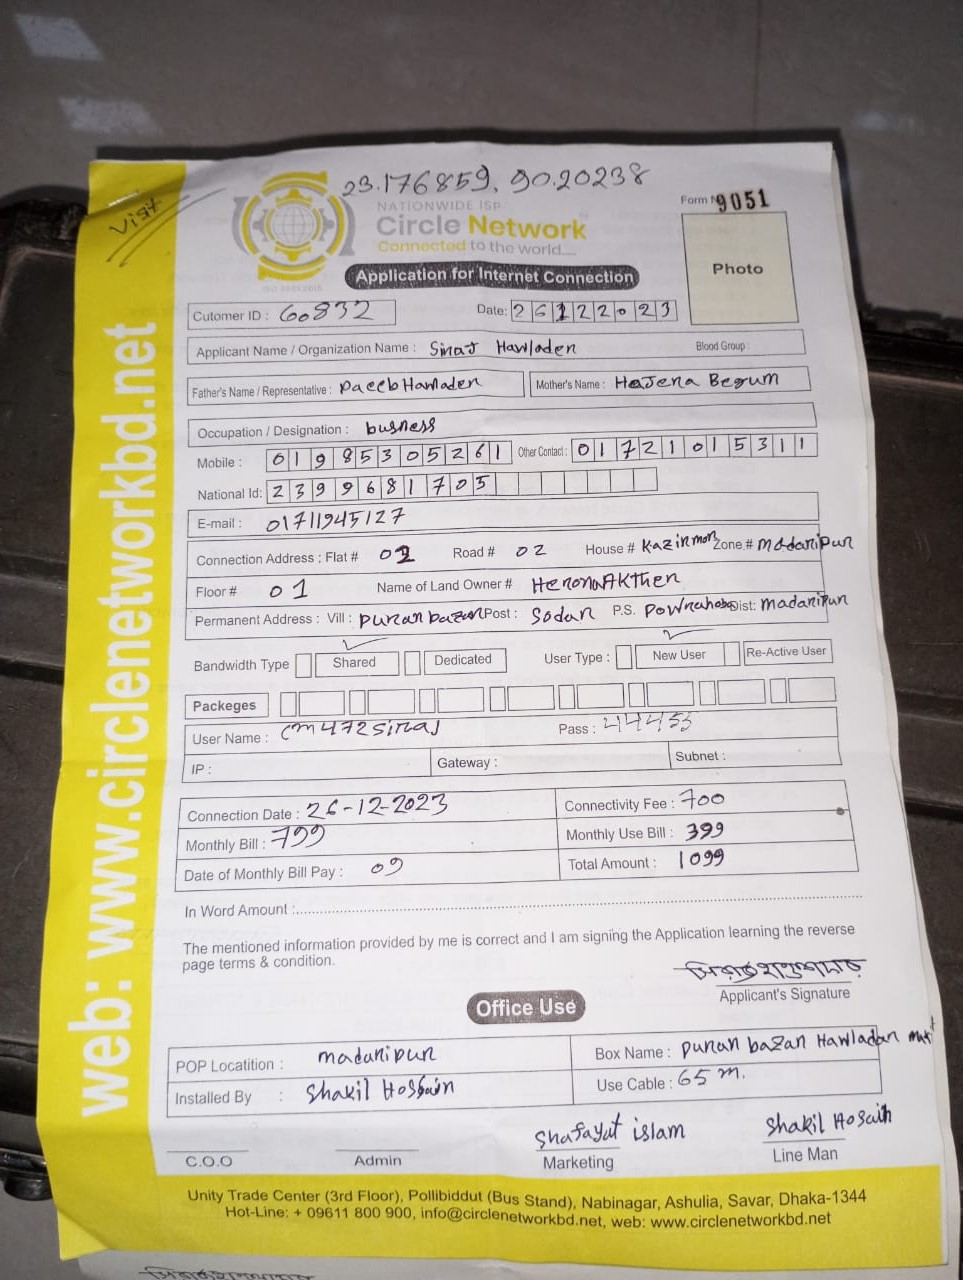 23.176859, 90.20238
Visit
NATIONWIDE ISP
Circle Network
Connected to the world....
Form 9051
Application for Internet Connection
Photo
Cutomer ID : 60832
Date: 26122023
Applicant Name / Organization Name : Siraj Hawlader
Blood Group :
Father's Name / Representative :
Mother's Name : Hajera Begum
Occupation / Designation : busness
Mobile : 01985305261 Other Contact : 01721015311
National Id: 2399681705
E-mail : 01711945127
Connection Address : Flat # Road # 02 House # Kazirmor Zone # Madaripur
Floor # 01 Name of Land Owner #
Permanent Address : Vill : puran bazar Post : Sodar P.S. Dist: madaripur
Bandwidth Type Shared Dedicated User Type : New User Re-Active User
Packeges
User Name : cm472siraj Pass :
IP : Gateway : Subnet :
Connection Date : 26-12-2023 Connectivity Fee : 700
Monthly Bill : 799 Monthly Use Bill : 399
Date of Monthly Bill Pay : 09 Total Amount : 1099
In Word Amount :
The mentioned information provided by me is correct and I am signing the Application learning the reverse
page terms & condition.
Applicant's Signature
Office Use
POP Locatition : madaripur Box Name : puran bazar Hawladar
Installed By : Shakil Hossain Use Cable : 65 m.
Shafayat islam Shakil Hosain
C.O.O Admin Marketing Line Man
Unity Trade Center (3rd Floor), Pollibiddut (Bus Stand), Nabinagar, Ashulia, Savar, Dhaka-1344
Hot-Line: + 09611 800 900, info@circlenetworkbd.net, web: www.circlenetworkbd.net
web: www.circlenetworkbd.net